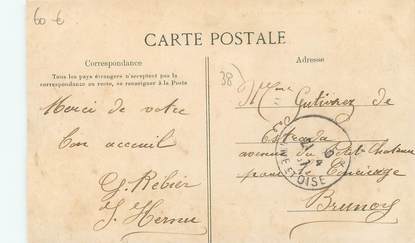 60 €
CARTE POSTALE
Correspondance
Adresse
Tous les pays étrangers n'acceptent pas la
correspondance au recto, se renseigner à la Poste
38
Mme Gutierez de
Estrada
Merci de votre
avenue du Petit Chateau
bon accueil
pour le Concierge
Brunoy
G. Rebier
J. Herneu
SEINE ET OISE